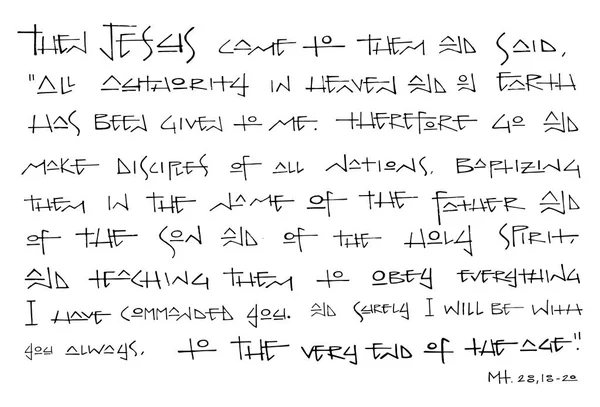 THEN JESUS CAME TO THEM AND SAID,
"ALL AUTHORITY IN HEAVEN AND ON EARTH
HAS BEEN GIVEN TO ME. THEREFORE GO AND
MAKE DISCIPLES OF ALL NATIONS, BAPTIZING
THEM IN THE NAME OF THE FATHER AND
OF THE SON AND OF THE HOLY SPIRIT,
AND TEACHING THEM TO OBEY EVERYTHING
I HAVE COMMANDED YOU. AND SURELY I WILL BE WITH
YOU ALWAYS, TO THE VERY END OF THE AGE."
Mt. 28,18-20